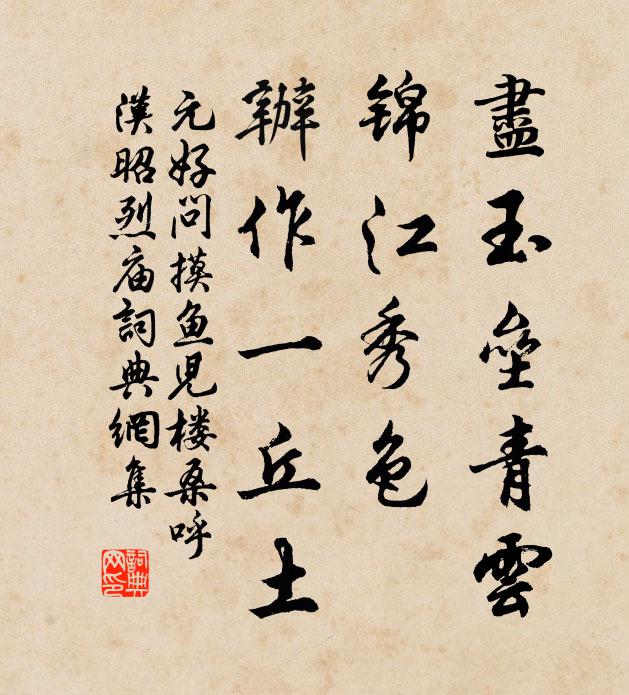 盡玉壘青雲
錦江秀色
辦作一丘土
元好問摸鱼児楼桑呼
漢昭烈庙詞典網集
詞典网印